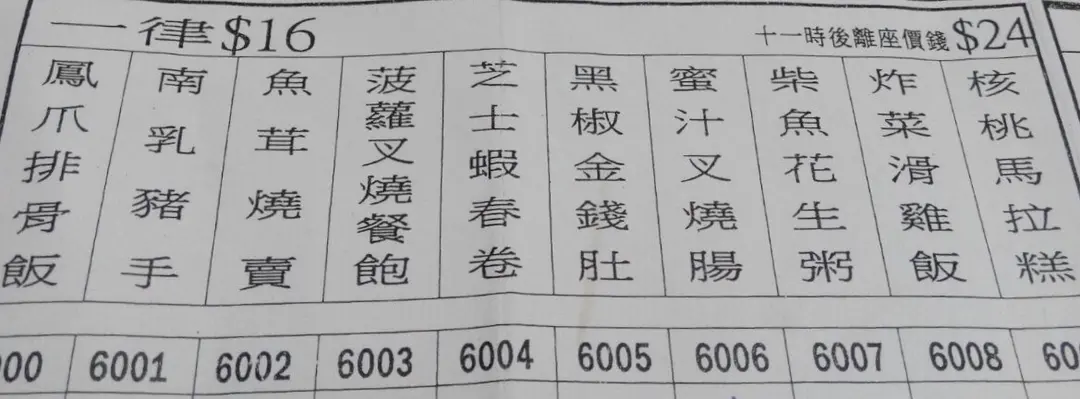 一律$16
十一時後離座價錢$24
鳳爪排骨飯
南乳豬手
魚茸燒賣
菠蘿叉燒餐飽
芝士蝦春卷
黑椒金錢肚
蜜汁叉燒腸
柴魚花生粥
炸菜滑雞飯
核桃馬拉糕
000 6001 6002 6003 6004 6005 6006 6007 6008 60